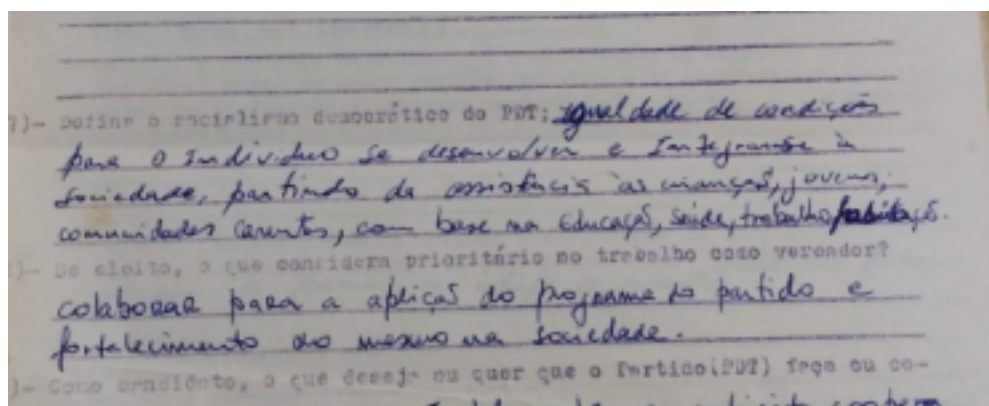 7)- Define o socialismo democrático do PDT: igualdade de condições
para o Individuo se desenvolver e Integrar-se à
sociedade, partindo da assistência às crianças, jovens,
comunidades carentes, com base na Educaçã, saúde, trabalho, habitaçã.
)- Se eleito, o que considera prioritário no trabalho como vereador?
colaborar para a aplicaçã do programa do partido e
fortalecimento do mesmo na sociedade.
)- Como candidato, o que deseja ou quer que o Partido(PDT) faça ou co-